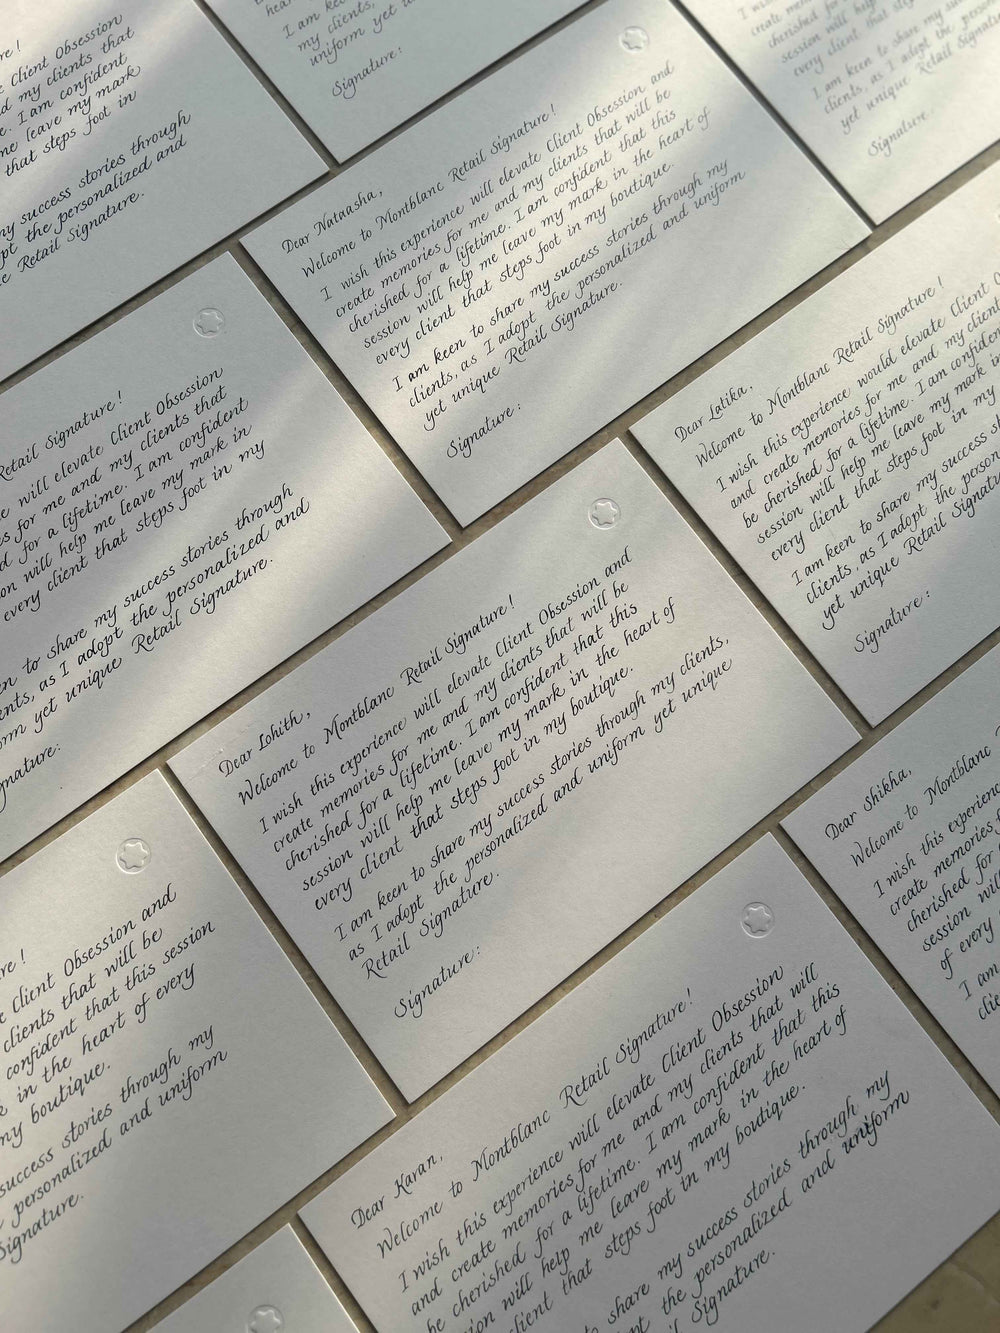 re!
e Client Obsession
d my clients that
e. I am confident
me leave my mark
that steps foot in
my success stories through
pt the personalized and
e Retail Signature.
I am kee
my clients,
uniform yet u
Signature:
create mem
cherished for
session will help
every client that
I am keen to share my su
clients, as I adopt the persona
yet unique Retail Signatu
Signature:
Dear Nataasha,
Welcome to Montblanc Retail Signature!
I wish this experience will elevate Client Obsession and
create memories for me and my clients that will be
cherished for a lifetime. I am confident that this
session will help me leave my mark in the heart of
every client that steps foot in my boutique.
I am keen to share my success stories through my
clients, as I adopt the personalized and uniform
yet unique Retail Signature.
Signature:
Retail Signature!
e will elevate Client Obsession
s for me and my clients that
d for a lifetime. I am confident
on will help me leave my mark in
every client that steps foot in my
n to share my success stories through
ents, as I adopt the personalized and
orm yet unique Retail Signature.
gnature:
Dear Latika,
Welcome to Montblanc Retail Signature!
I wish this experience would elevate Client O
and create memories for me and my clien
be cherished for a lifetime. I am confiden
session will help me leave my mark in
every client that steps foot in my
I am keen to share my success s
clients, as I adopt the person
yet unique Retail Signatu
Signature:
Dear Lohith,
Welcome to Montblanc Retail Signature!
I wish this experience will elevate Client Obsession and
create memories for me and my clients that will be
cherished for a lifetime. I am confident that this
session will help me leave my mark in the heart of
every client that steps foot in my boutique.
I am keen to share my success stories through my clients,
as I adopt the personalized and uniform yet unique
Retail Signature.
Signature:
re!
e Client Obsession and
clients that will be
confident that this session
k in the heart of every
my boutique.
success stories through my
personalized and uniform
Signature.
Dear Shikha,
Welcome to Montblanc
I wish this experienc
create memories f
cherished for a
session will
of every
I am
clie
Dear Karan,
Welcome to Montblanc Retail Signature!
I wish this experience will elevate Client Obsession
and create memories for me and my clients that will
be cherished for a lifetime. I am confident that this
sion will help me leave my mark in the heart of
client that steps foot in my boutique.
to share my success stories through my
the personalized and uniform
Signature.